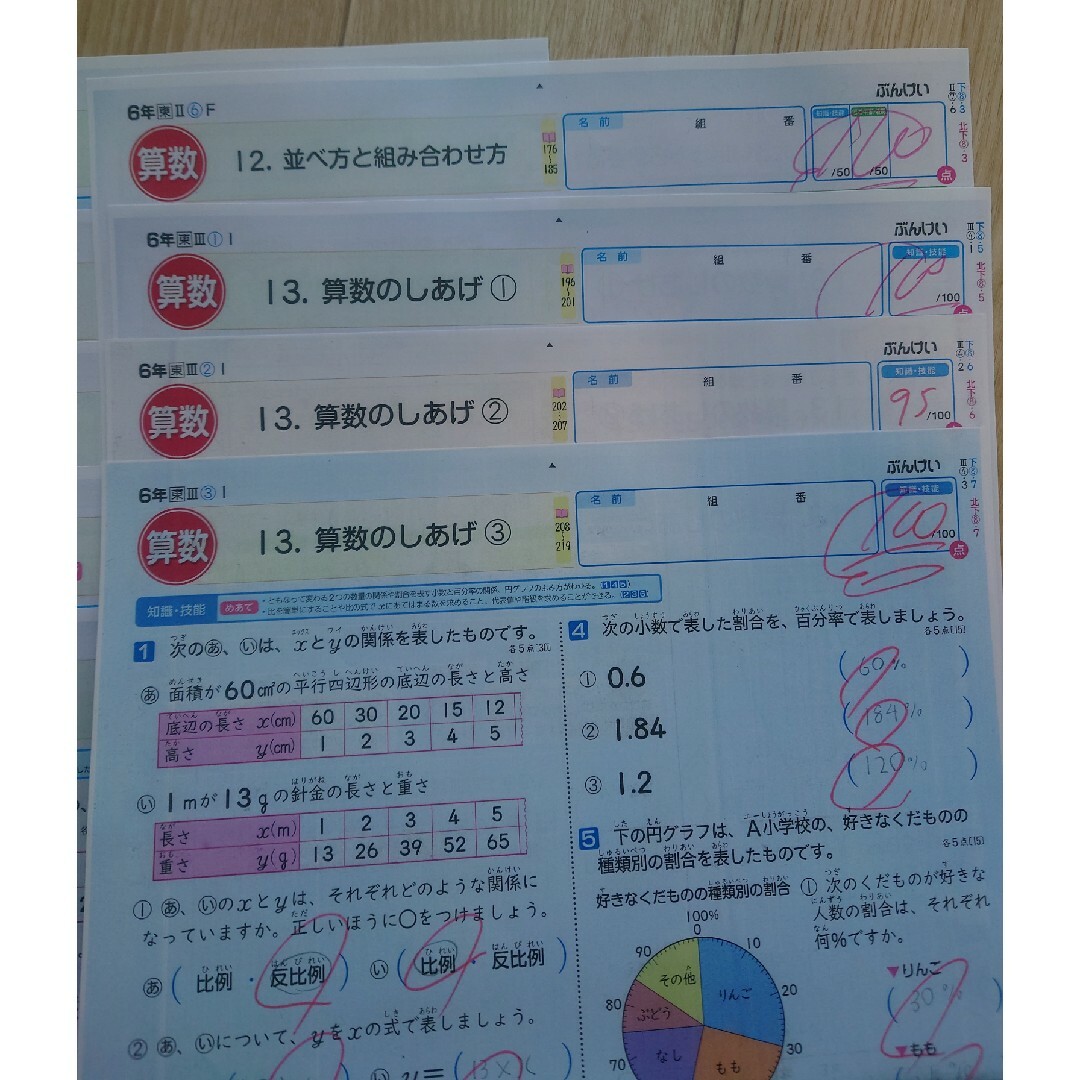 6年 東 Ⅱ⑥F
ぶんけい
算数
12. 並べ方と組み合わせ方
176~185
名前 組 番
知識・技能
/50 /50
100
点
6年 東 Ⅲ①1
ぶんけい
算数
13. 算数のしあげ ①
196~201
名前 組 番
知識・技能
100
/100
点
6年 東 Ⅲ②1
ぶんけい
算数
13. 算数のしあげ ②
202~207
名前 組 番
知識・技能
95
/100
6年 東 Ⅲ③1
ぶんけい
算数
13. 算数のしあげ ③
208~219
名前 組 番
知識・技能
100
/100
点
知識・技能 めあて
1 次のあ、いは、xとyの関係を表したものです。
各5点[30]
あ 面積が60㎠の平行四辺形の底辺の長さと高さ
底辺の長さ x(cm) 60 30 20 15 12
高さ y(cm) 1 2 3 4 5
い 1mが13gの針金の長さと重さ
長さ x(m) 1 2 3 4 5
重さ y(g) 13 26 39 52 65
① あ、いのxとyは、それぞれどのような関係に
なっていますか。正しいほうに○をつけましょう。
あ ( 比例 ・ 反比例 ) い ( 比例 ・ 反比例 )
② あ、いについて、yをxの式で表しましょう。
い y=(13×x
4 次の小数で表した割合を、百分率で表しましょう。
各5点[15]
① 0.6 (60%)
② 1.84 (184%)
③ 1.2 (120%)
5 下の円グラフは、A小学校の、好きなくだものの
種類別の割合を表したものです。
各5点[15]
好きなくだものの種類別の割合
100%
0
10
20
30
70
80
90
りんご
もも
なし
ぶどう
その他
① 次のくだものが好きな
人数の割合は、それぞれ
何%ですか。
▼りんご
(30%)
▼もも